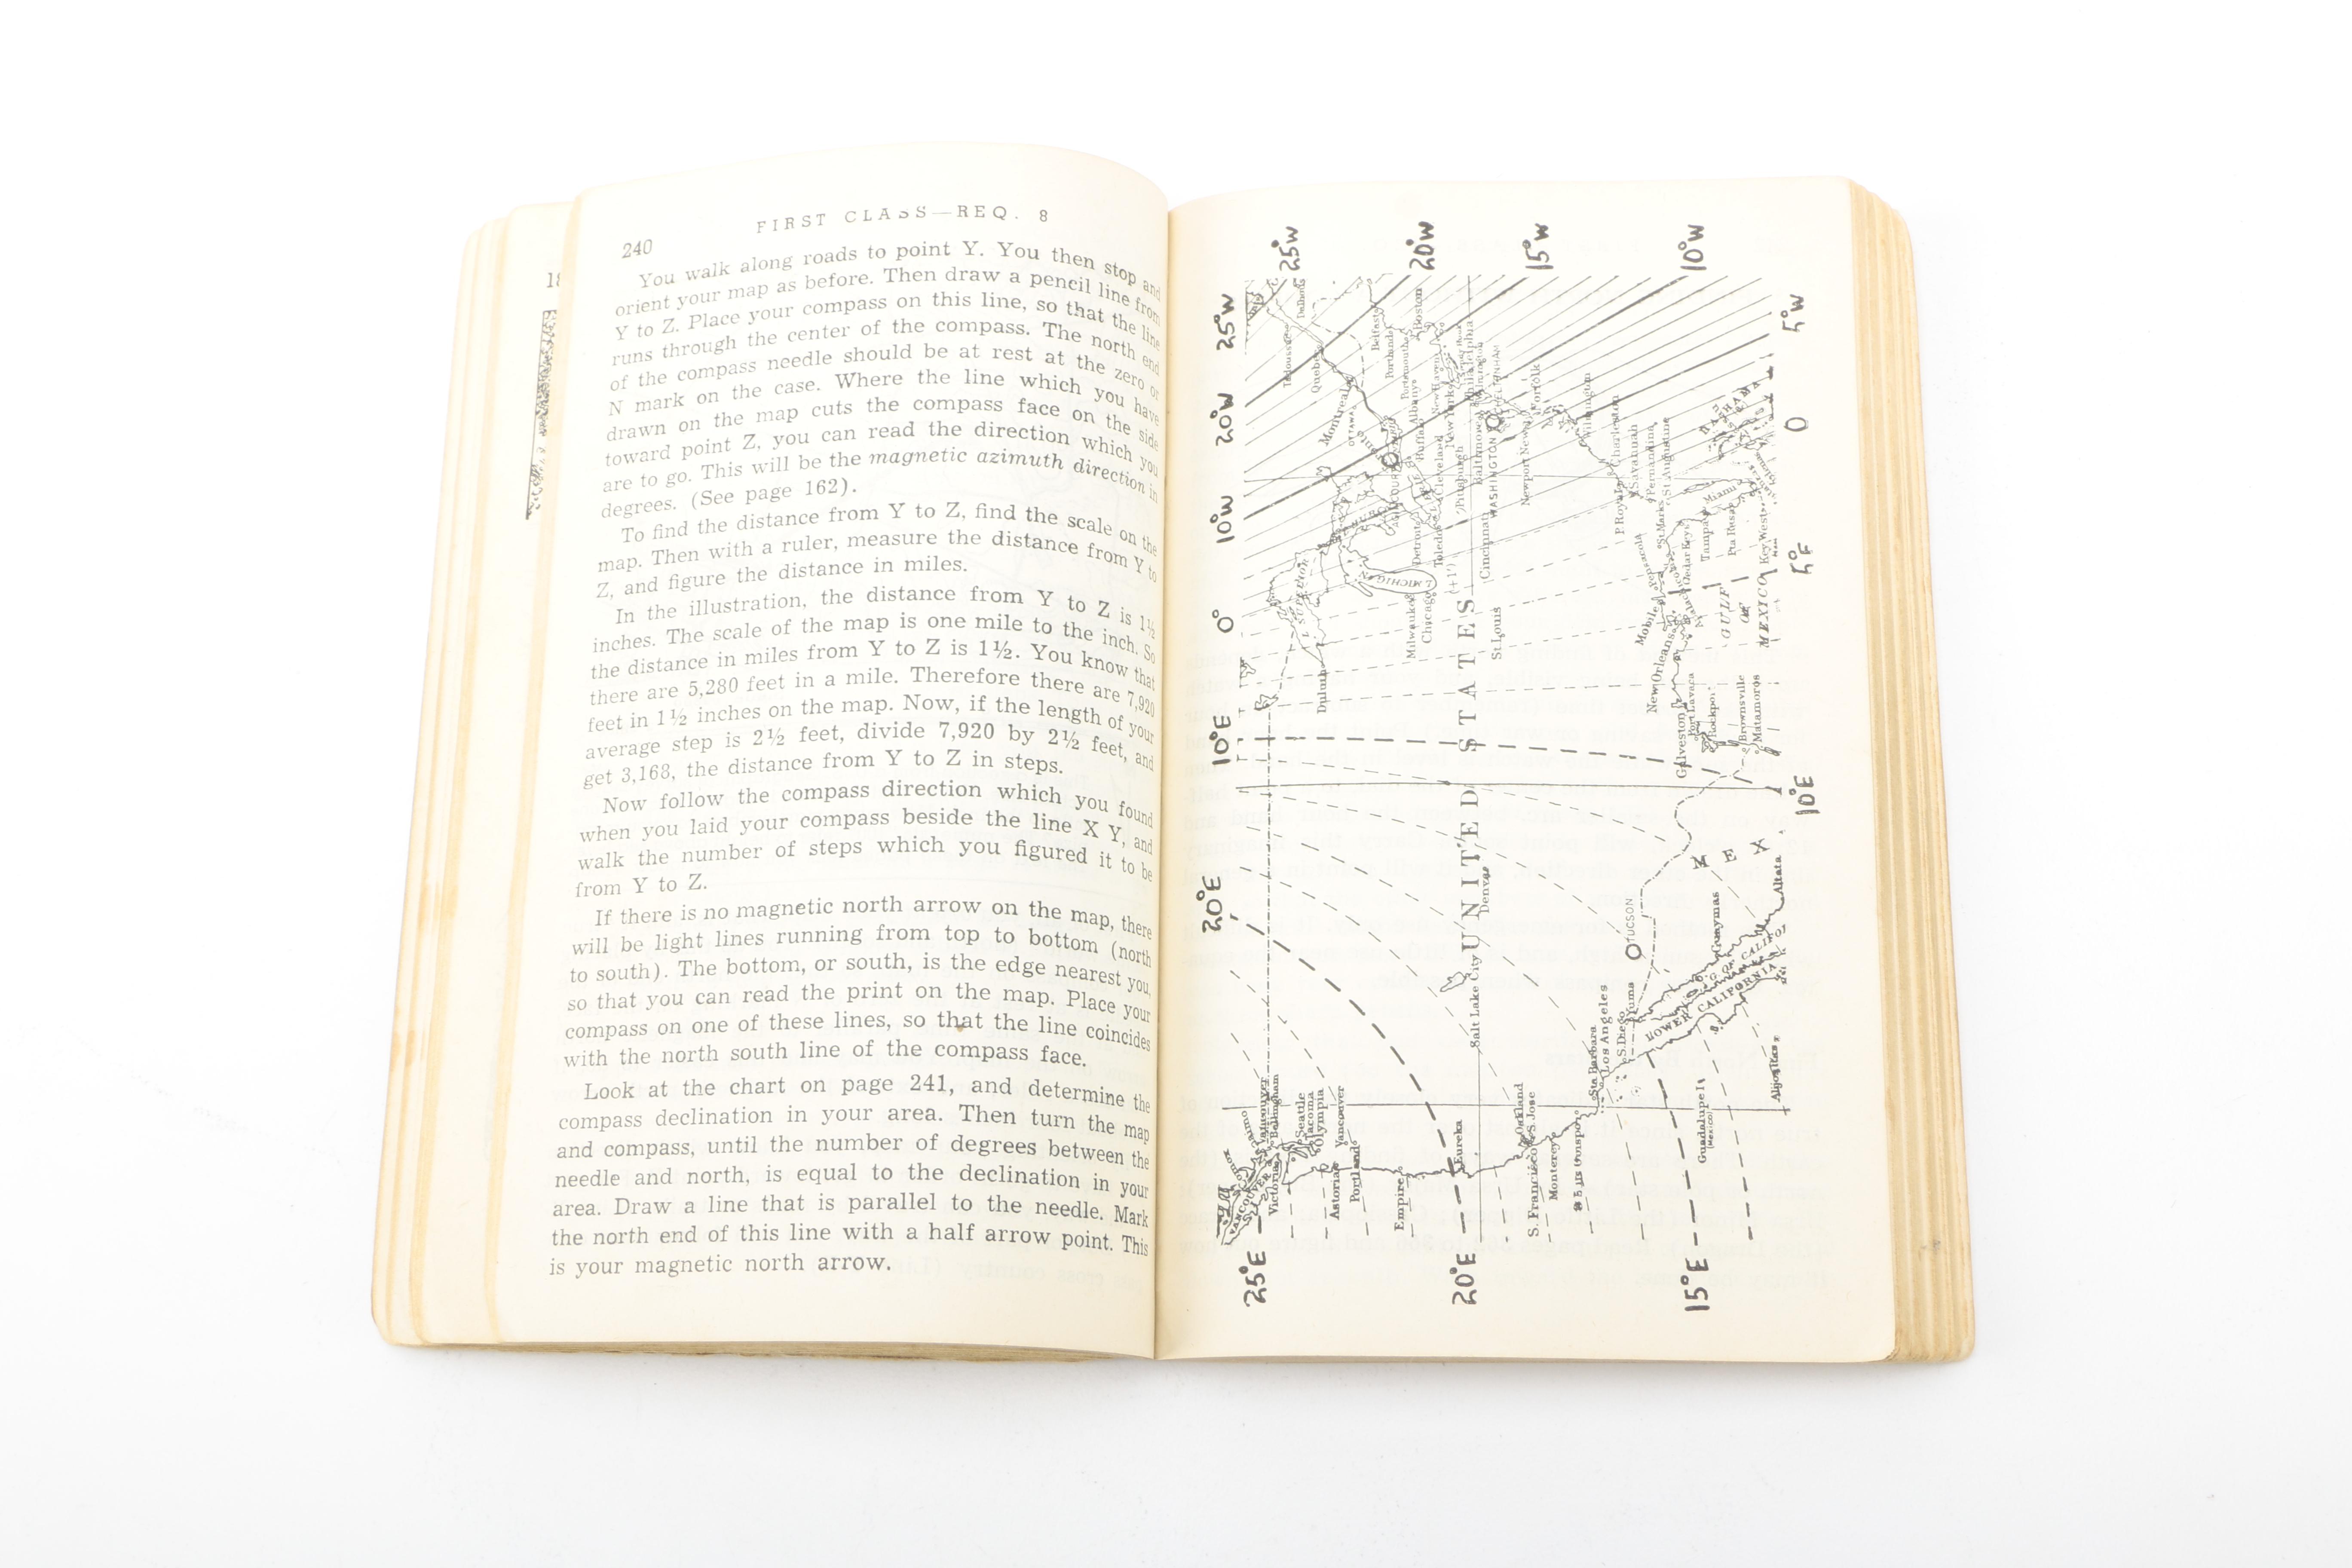 FIRST CLASS—REQ. 8
240
You walk along roads to point Y. You then stop and
orient your map as before. Then draw a pencil line from
Y to Z. Place your compass on this line, so that the line
runs through the center of the compass. The north end
of the compass needle should be at rest at the zero or
N mark on the case. Where the line which you have
drawn on the map cuts the compass face on the side
toward point Z, you can read the direction which you
are to go. This will be the magnetic azimuth direction in
degrees. (See page 162).
To find the distance from Y to Z, find the scale on the
map. Then with a ruler, measure the distance from Y to
Z, and figure the distance in miles.
In the illustration, the distance from Y to Z is 1½
inches. The scale of the map is one mile to the inch. So
the distance in miles from Y to Z is 1½. You know that
there are 5,280 feet in a mile. Therefore there are 7,920
feet in 1½ inches on the map. Now, if the length of your
average step is 2½ feet, divide 7,920 by 2½ feet, and
get 3,168, the distance from Y to Z in steps.
Now follow the compass direction which you found
when you laid your compass beside the line X Y, and
walk the number of steps which you figured it to be
from Y to Z.
If there is no magnetic north arrow on the map, there
will be light lines running from top to bottom (north
to south). The bottom, or south, is the edge nearest you,
so that you can read the print on the map. Place your
compass on one of these lines, so that the line coincides
with the north south line of the compass face.
Look at the chart on page 241, and determine the
compass declination in your area. Then turn the map
and compass, until the number of degrees between the
needle and north, is equal to the declination in your
area. Draw a line that is parallel to the needle. Mark
the north end of this line with a half arrow point. This
is your magnetic north arrow.
25°E
20°E
10°E
0°
10°W
20°W
25°W
25°W
20°W
15°W
10°W
5°W
0
10°E
15°E
20°E
UNITED STATES
Victoria
Vancouver
Bellingham
Seattle
Tacoma
Olympia
Astoria
Vancouver
Portland
Empire
Eureka
Oakland
S. Francisco
S. Jose
Monterey
Sta Barbara
Los Angeles
S. Diego
Yuma
TUCSON
LOWER CALIFORNIA
Guadalupe I.
(Mexico)
Guaymas
Altata
MEX
Salt Lake City
Denver
Duluth
L. SUPERIOR
L. MICHIG.
Milwaukee
Chicago
St. Louis
Cincinnati
Detroit
Toledo
Cleveland
Pittsburgh
Buffalo
Albany
Montreal
OTTAWA
Quebec
Belfast
Portland
Portsmouth
Boston
New Haven
New York
Philadelphia
Baltimore
WASHINGTON
CHELTENHAM
Newport News
Norfolk
Wilmington
Charleston
P. Royal
Savannah
Fernandina
St. Augustine
St. Marks
Cedar Keys
Tampa
Pta Rasa
Miami
Key West
BAHAMA
Pensacola
Mobile
New Orleans
Galveston
Port Lavaca
Rockport
Brownsville
Matamoros
GULF
OF
MEXICO